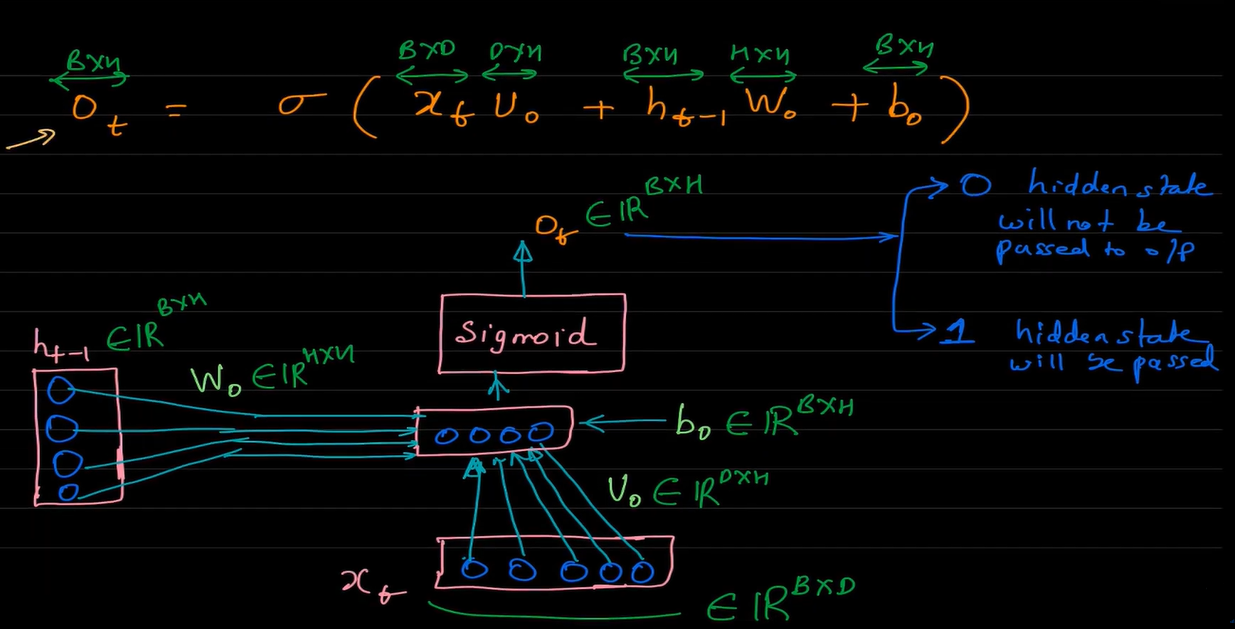 B×H B×D D×H B×H H×H B×H
O_t = σ ( x_t U_o + h_{t-1} W_o + b_o )
O_t ∈ ℝ^{B×H}
0 hidden state
will not be
passed to o/p
1 hidden state
will be passed
Sigmoid
h_{t-1} ∈ ℝ^{B×H}
W_o ∈ ℝ^{H×H}
b_o ∈ ℝ^{B×H}
U_o ∈ ℝ^{D×H}
x_t ∈ ℝ^{B×D}